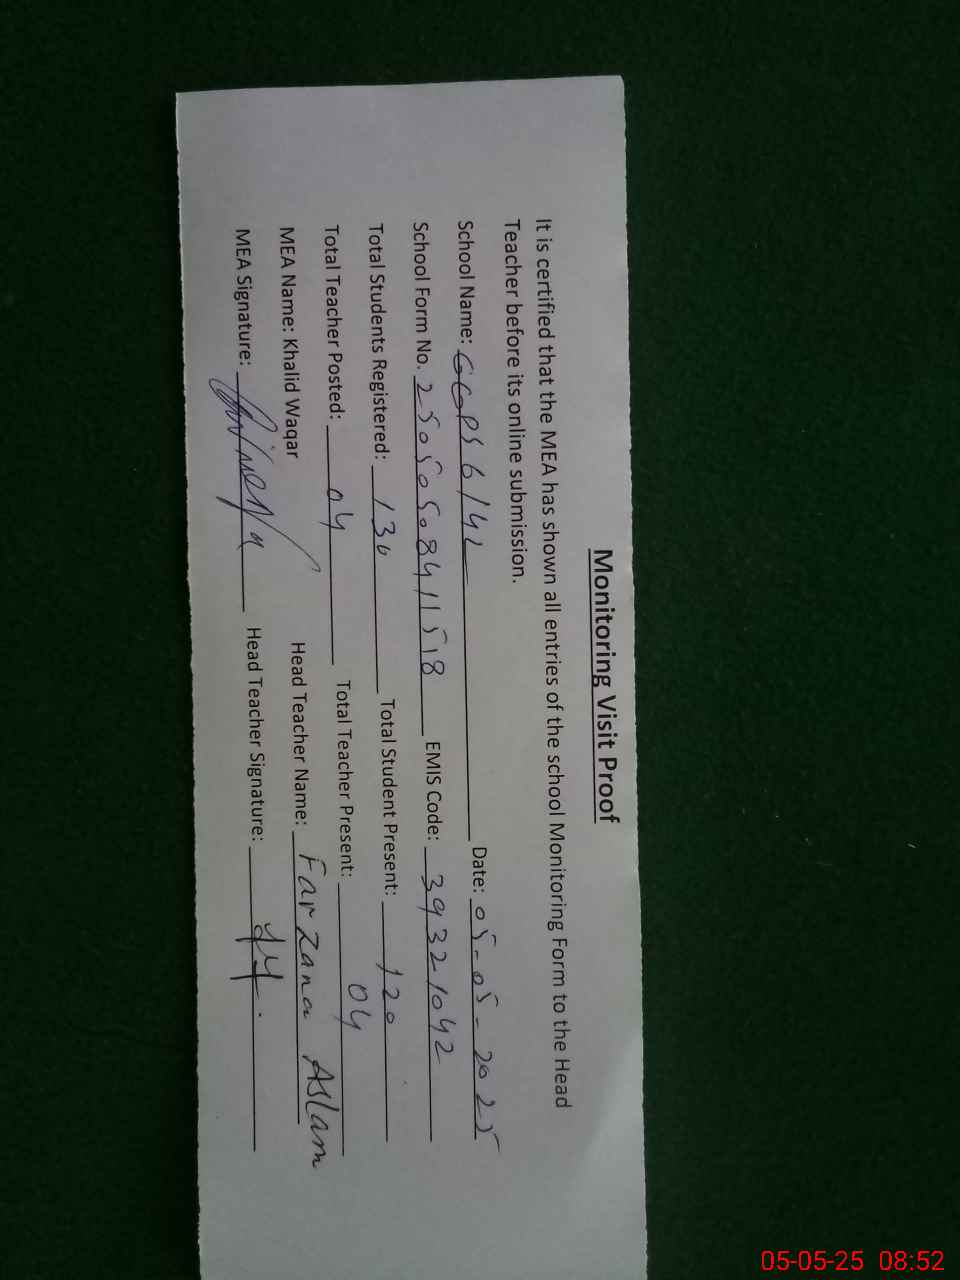 Monitoring Visit Proof
It is certified that the MEA has shown all entries of the school Monitoring Form to the Head
Teacher before its online submission.
School Name: GGPS 6/4L Date: 05-05-2025
School Form No. 25050508411518 EMIS Code: 39321042
Total Students Registered: 130 Total Student Present: 120
Total Teacher Posted: 04 Total Teacher Present: 04
MEA Name: Khalid Waqar Head Teacher Name: Farzana Aslam
MEA Signature: Head Teacher Signature:
05-05-25 08:52